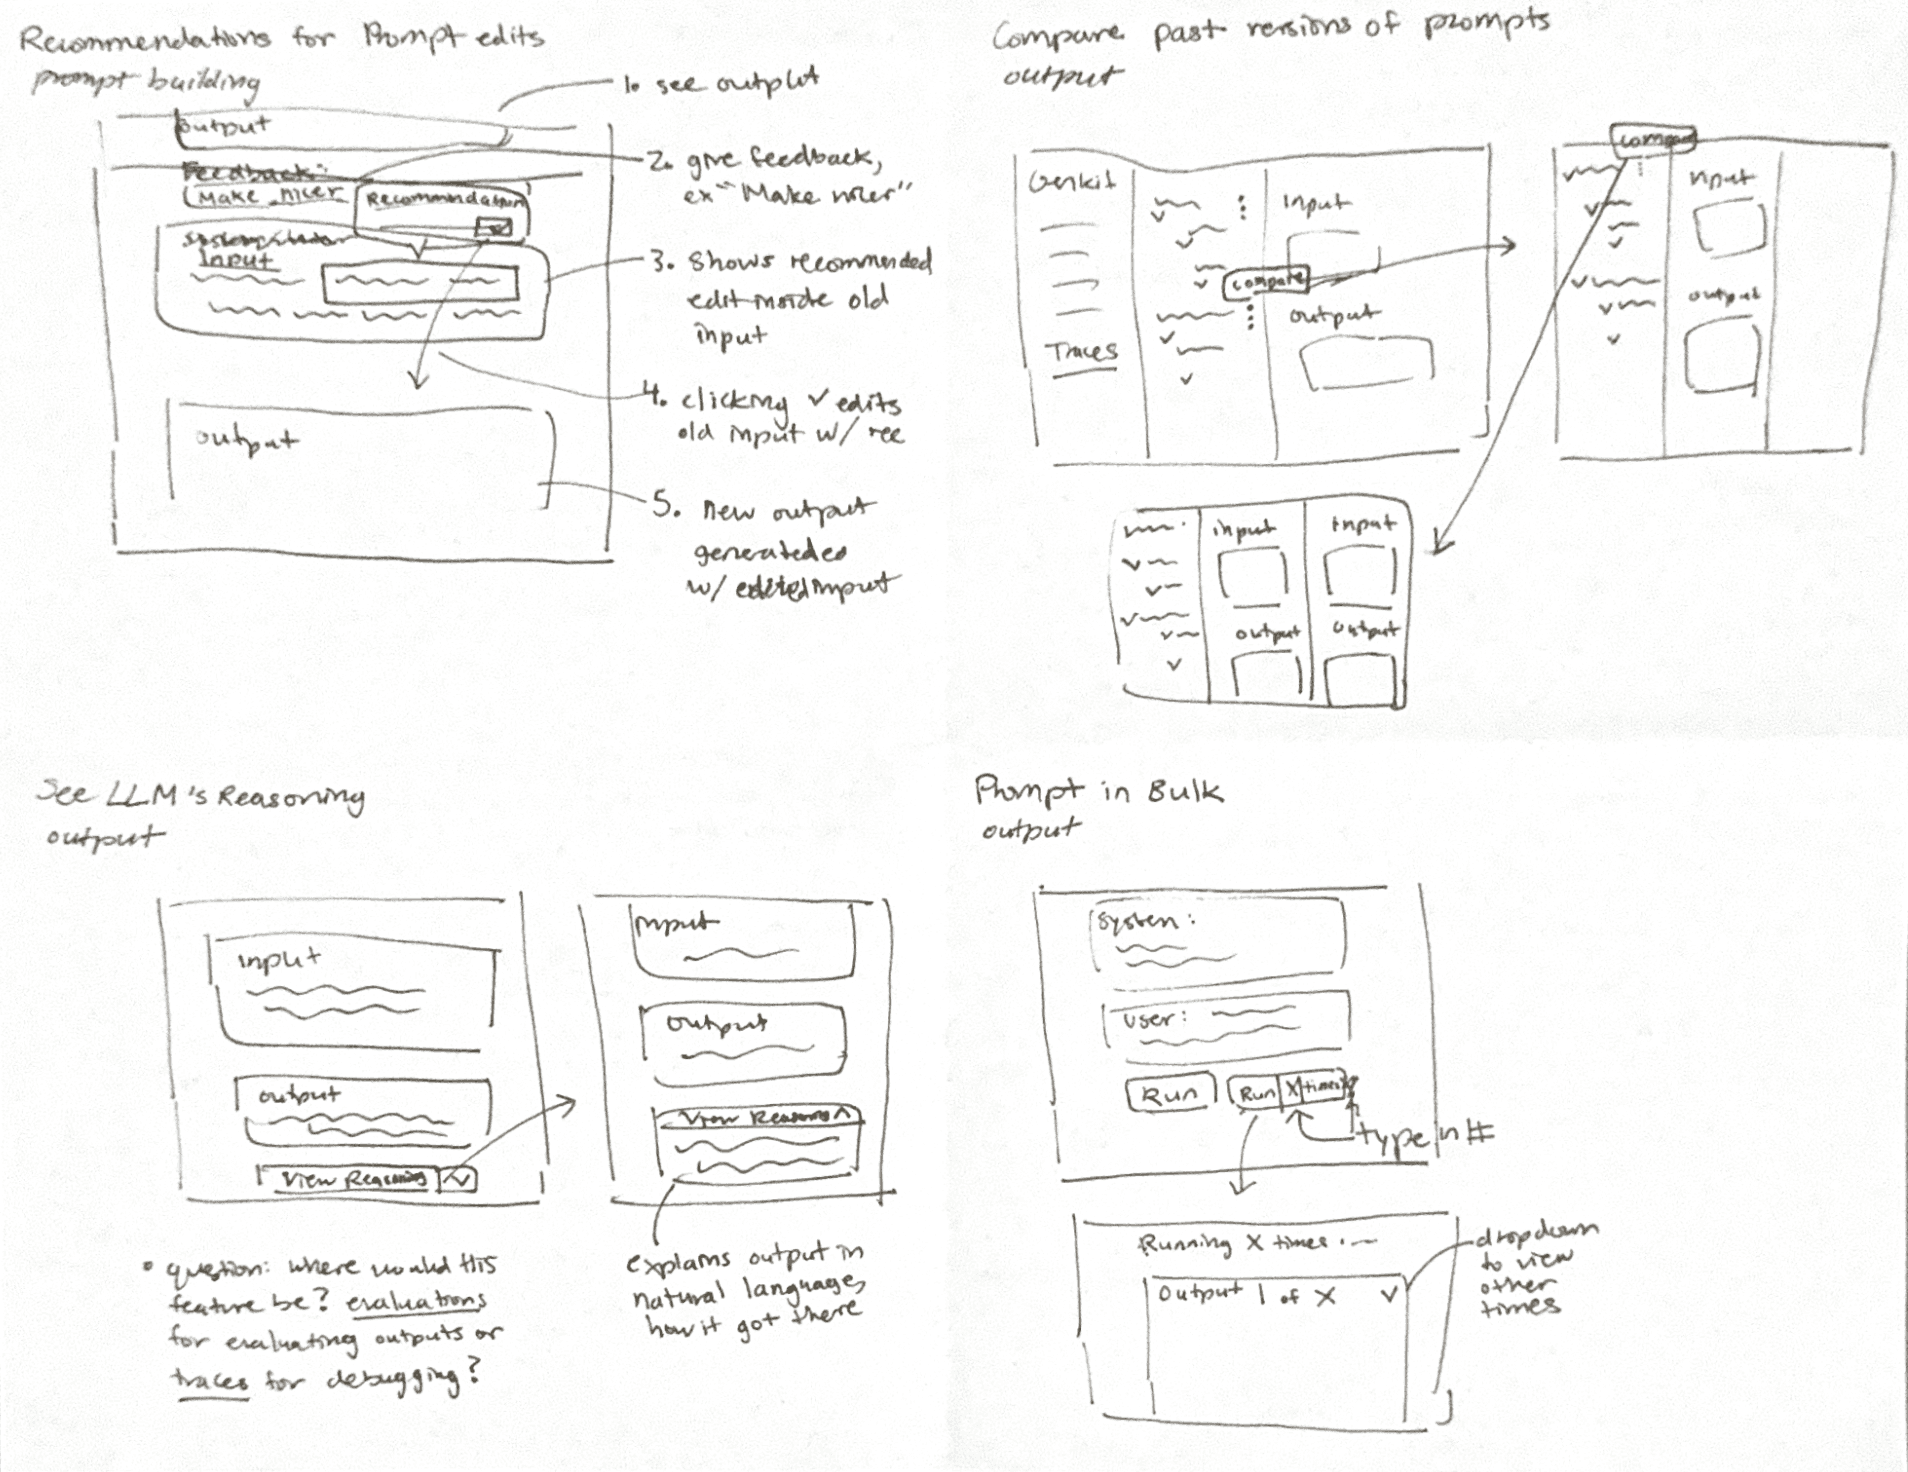 Recommendations for Prompt edits
prompt building
output
Feedback:
Make nicer
Recommendation
Input
output
1. see output
2. give feedback,
ex "Make nicer"
3. shows recommended
edit inside old
input
4. clicking ✓ edits
old input w/ rec
5. new output
generated
w/ edited input
Compare past versions of prompts
output
Genkit
Traces
compare
Input
output
compare
Input
output
input
Input
output
output
See LLM's Reasoning
output
input
output
View Reasoning
Input
Output
View Reasoning
• question: where would this
feature be? evaluations
for evaluating outputs or
traces for debugging?
explains output in
natural language,
how it got there
Prompt in Bulk
output
System:
User:
Run
Run X times
type in #
Running X times
Output 1 of X
dropdown
to view
other
times